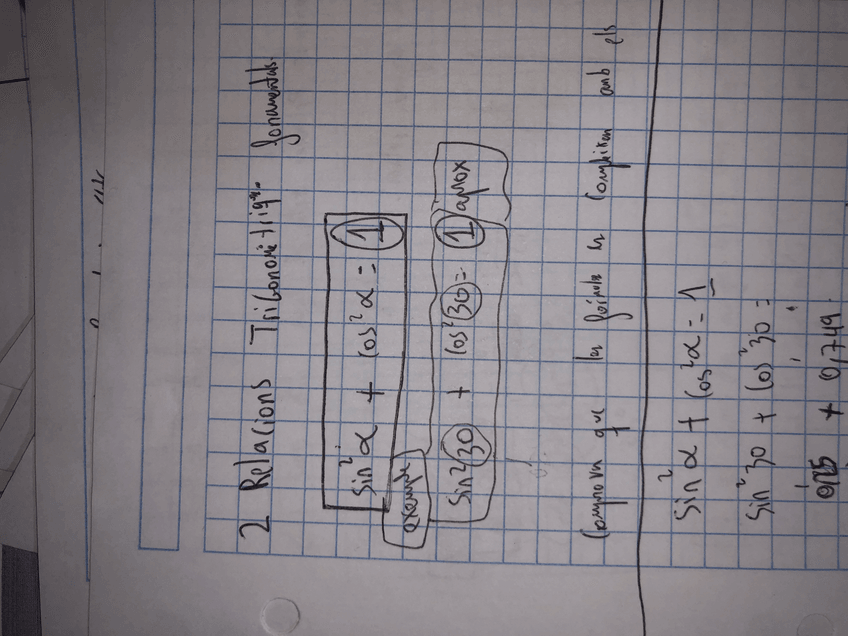 2 Relacions Trigonometriq. fonamentals.
sin²α + cos²α = 1
exemple
sin²30 + cos²30 = 1 aprox
Comprova que la fórmula es compleixen amb els
sin²α + cos²α = 1
sin²30 + cos²30 =
0,25 + 0,749.